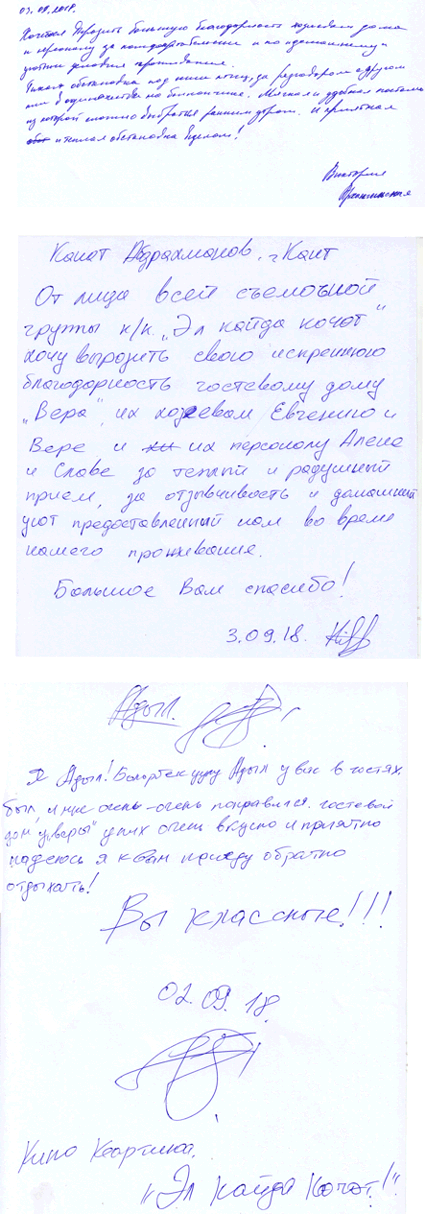 03.09.2018.
Хочется выразить большую благодарность хозяевам дома
и персоналу за комфортабельные и по-домашнему
уютные условия проживания.
обстановка под
на балкончике. Мягкая и удобная постель
из которой сложно выбраться ранним утром. И приятная
и теплая обстановка в целом!
Виктория
Канат Абдрахманов, г. Кант
От лица всей съемочной
группы к/к „Эл кайда кочот"
хочу выразить свою искреннюю
благодарность гостевому дому
„Вера", их хозяевам Евгению и
Вере и их персоналу Алене
и Славе за теплый и радушный
прием, за отзывчивость и домашний
уют предоставленный нам во время
нашего проживания.
Большое Вам спасибо!
3.09.18.
Адыл.
Я Адыл! Болортбек уулу Адыл у вас в гостях
был, и мне очень-очень понравился гостевой
дом у „Веры" у них очень вкусно и приятно
надеюсь я к Вам приеду обратно
отдыхать!
Вы классные!!!
02.09.18
Кино Картина.
„Эл кайда Кочот!"